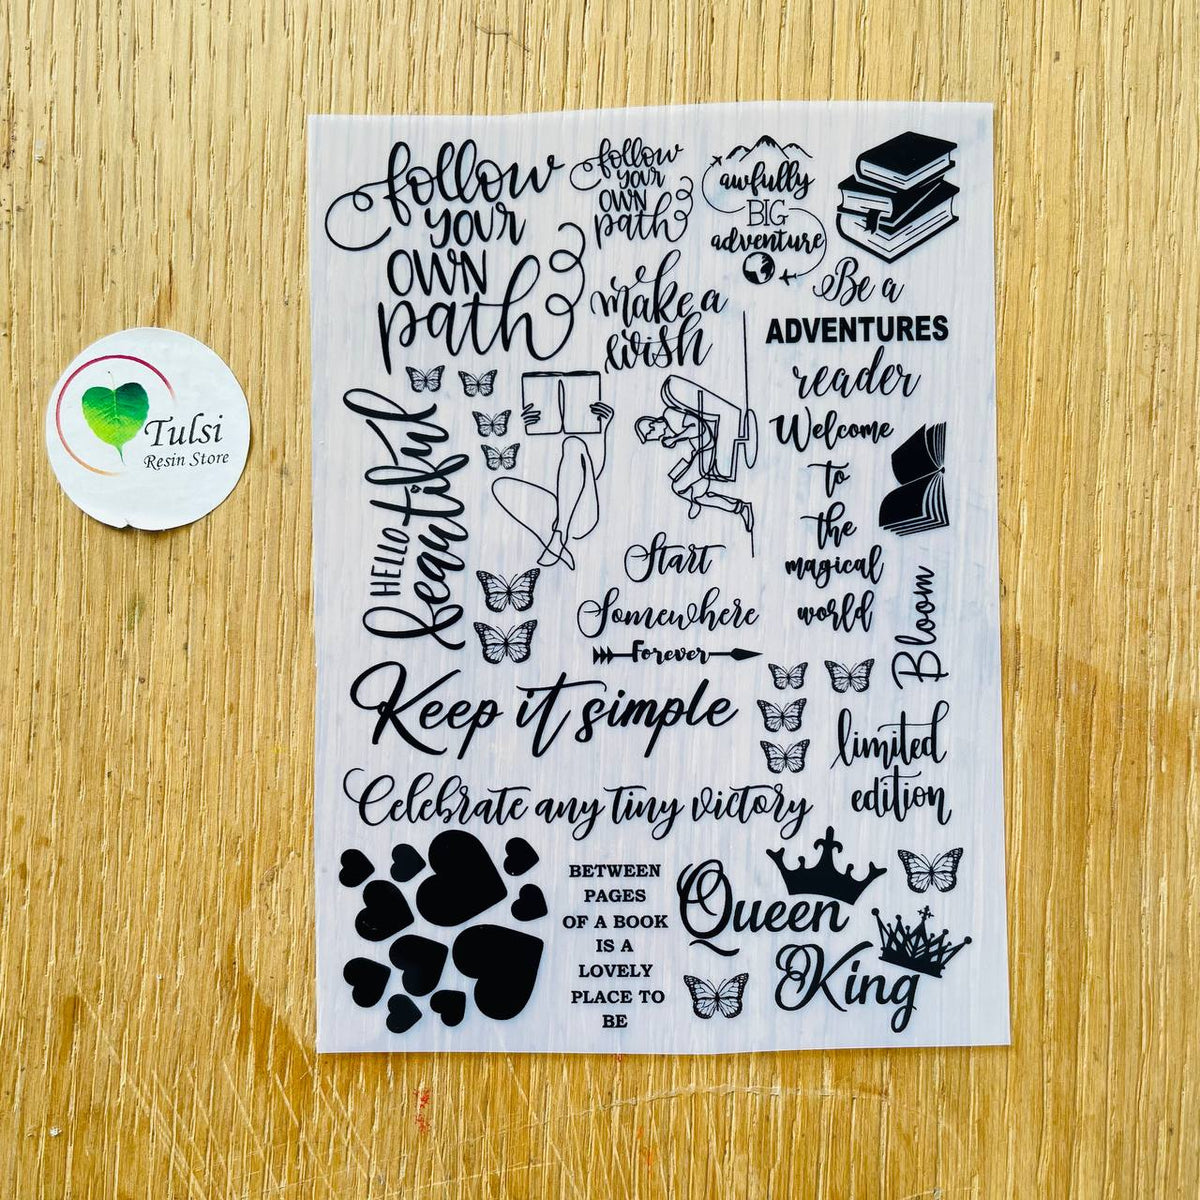 follow
your
own
path
follow
your
own
path
awfully
BIG
adventure
make a
wish
Be a
ADVENTURES
reader
Welcome
to
the
magical
world
HELLO
beautiful
Tulsi
Resin Store
Start
Somewhere
Forever
Bloom
Keep it simple
limited
edition
Celebrate any tiny victory
BETWEEN
PAGES
OF A BOOK
IS A
LOVELY
PLACE TO
BE
Queen
King